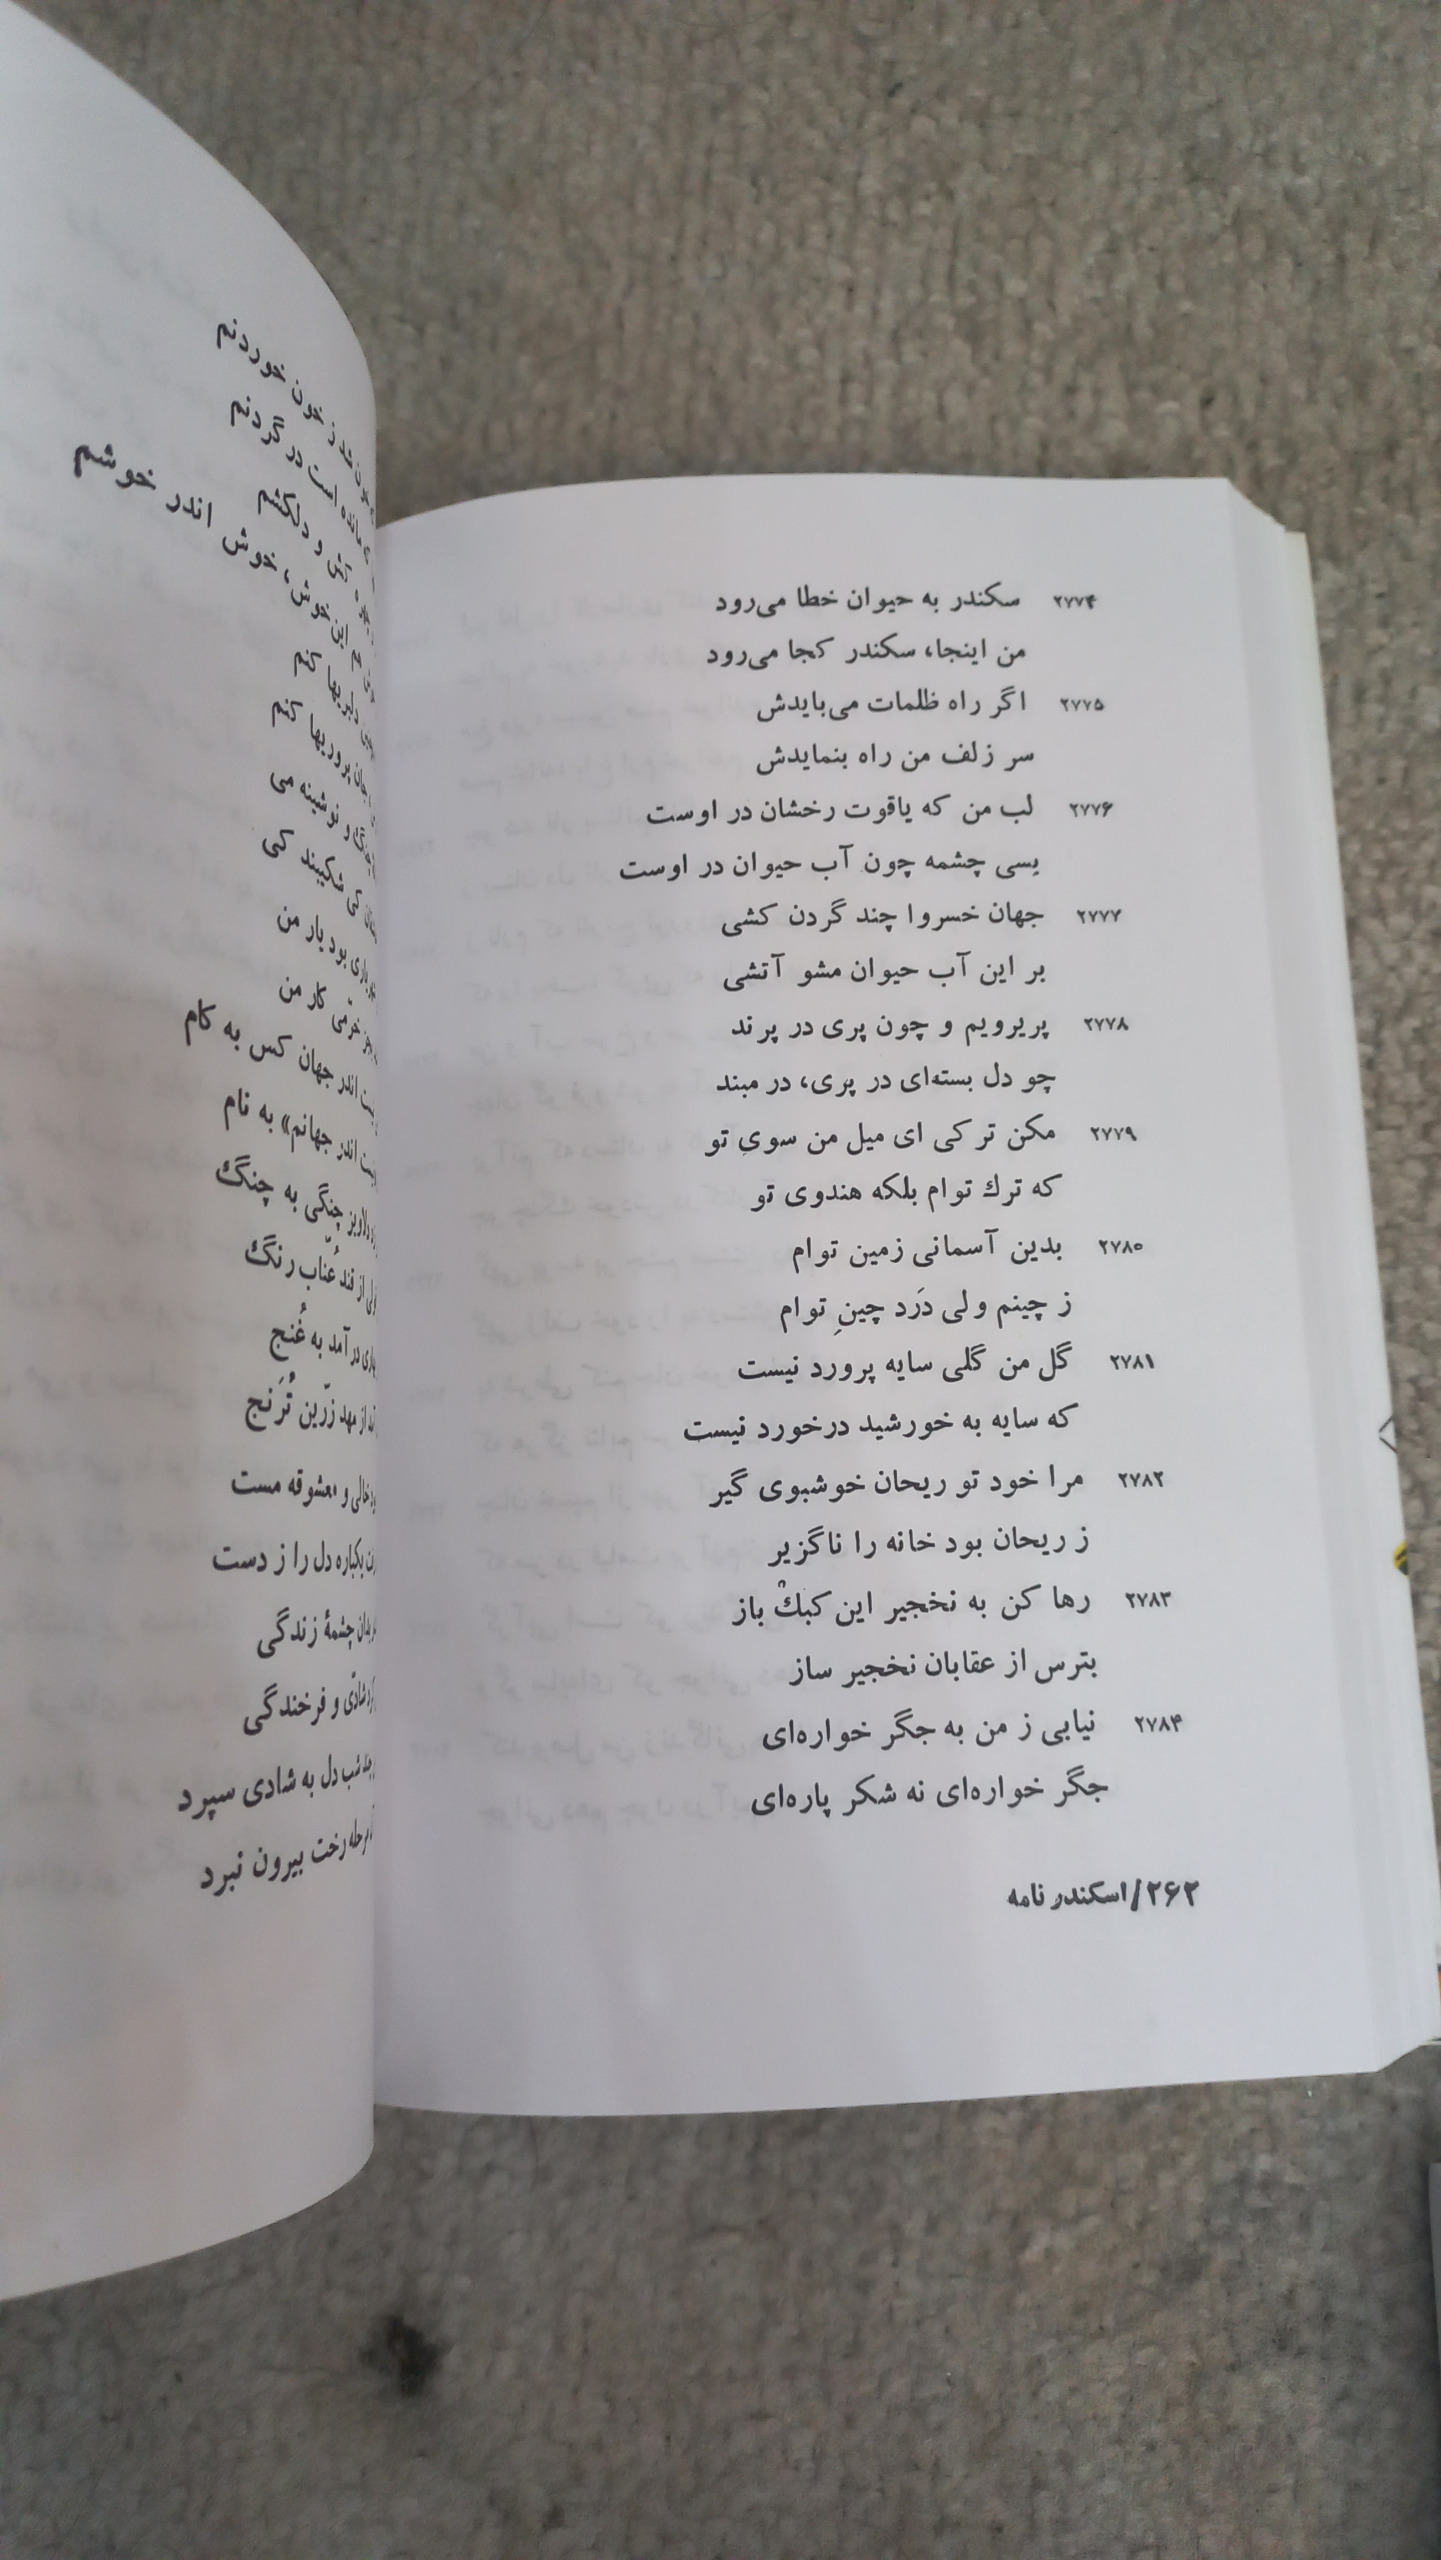 ۲۷۷۴ سکندر به حیوان خطا می‌رود
من اینجا، سکندر کجا می‌رود
۲۷۷۵ اگر راه ظلمات می‌بایدش
سر زلف من راه بنمایدش
۲۷۷۶ لب من که یاقوت رخشان در اوست
بسی چشمه چون آب حیوان در اوست
۲۷۷۷ جهان خسروا چند گردن کشی
بر این آب حیوان مشو آتشی
۲۷۷۸ پریرویم و چون پری در پرند
چو دل بسته‌ای در پری، در مبند
۲۷۷۹ مکن ترکی ای میل من سویِ تو
که ترك توام بلکه هندوی تو
۲۷۸۰ بدین آسمانی زمین توام
ز چینم ولی دَرد چینِ توام
۲۷۸۱ گل من گلی سایه پرورد نیست
که سایه به خورشید درخورد نیست
۲۷۸۲ مرا خود تو ریحان خوشبوی گیر
ز ریحان بود خانه را ناگزیر
۲۷۸۳ رها کن به نخجیر این کبكْ باز
بترس از عقابان نخجیر ساز
۲۷۸۴ نیابی ز من به جگر خواره‌ای
جگر خواره‌ای نه شکر پاره‌ای
۲۶۲/اسکندر نامه
شد ز خون خوردنم
مانده است در گردنم
کش و دلکشم
این خوش، خوش اندر خوشم
دلبریها کنم
جان پروریها کنم
و نوشینه می
کی شکیبد کی
یاری بود یار من
خرّمی کار من
اندر جهان کس به کام
اندر جهانم» به نام
دلاویز چنگی به چنگ
از قند عُنّاب رنگ
در آمد به غُنج
از مهد زرّین تُرَنج
خالی و معشوقه مست
یکباره دل را ز دست
بدان چشمهٔ زندگی
شادی و فرخندگی
شب دل به شادی سپرد
رخت بیرون نبرد